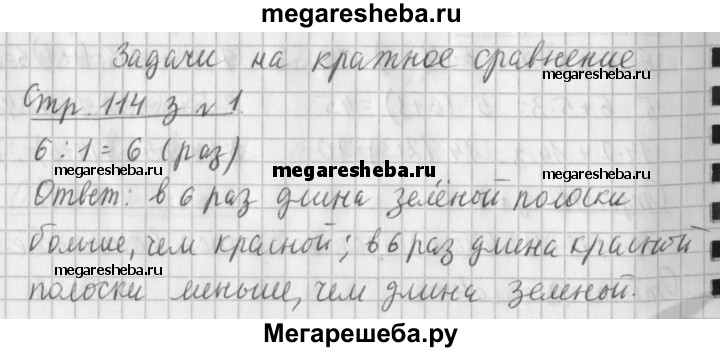 megaresheba.ru
Задачи на кратное сравнение
megaresheba.ru megaresheba.ru
Стр. 114 з № 1.
6 : 1 = 6 (раз)
megaresheba.ru megaresheba.ru megaresheba.ru
Ответ: в 6 раз длина зелёной полоски
больше, чем красной; в 6 раз длина красной
megaresheba.ru megaresheba.ru
полоски меньше, чем длина зеленой.
Мегарешеба.ру